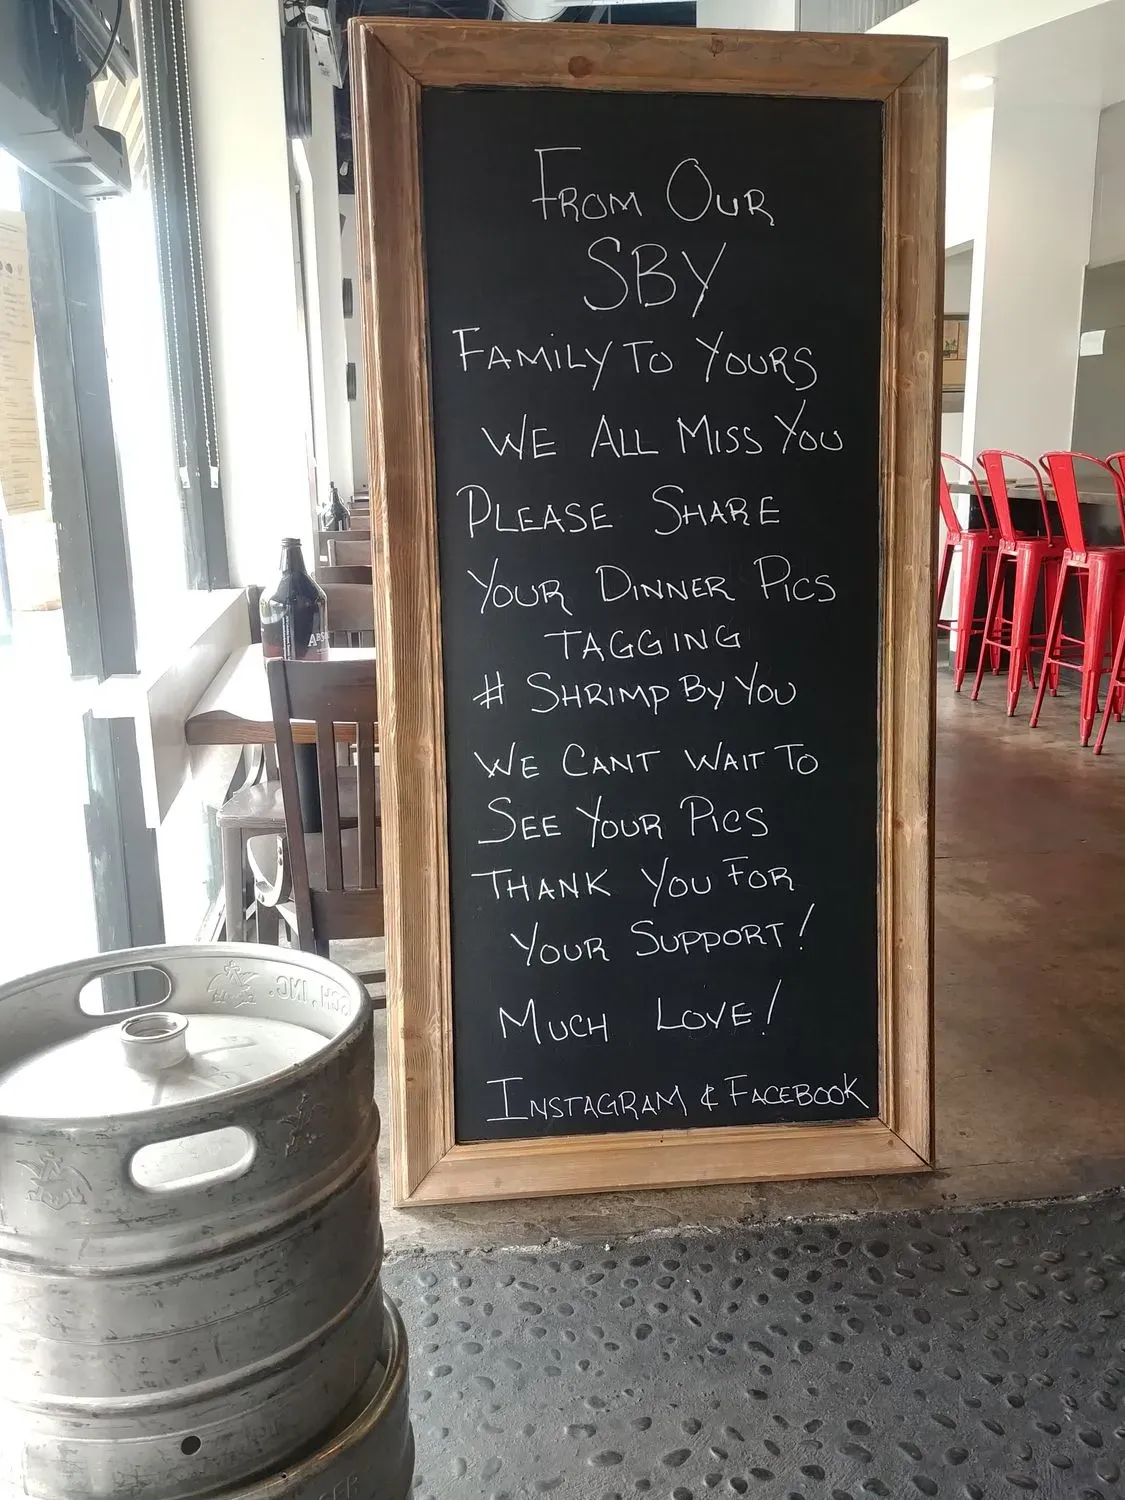 FROM OUR
SBY
FAMILY TO YOURS
WE ALL MISS YOU
PLEASE SHARE
YOUR DINNER PICS
TAGGING
# SHRIMP BY YOU
WE CANT WAIT TO
SEE YOUR PICS
THANK YOU FOR
YOUR SUPPORT!
MUCH LOVE!
INSTAGRAM & FACEBOOK